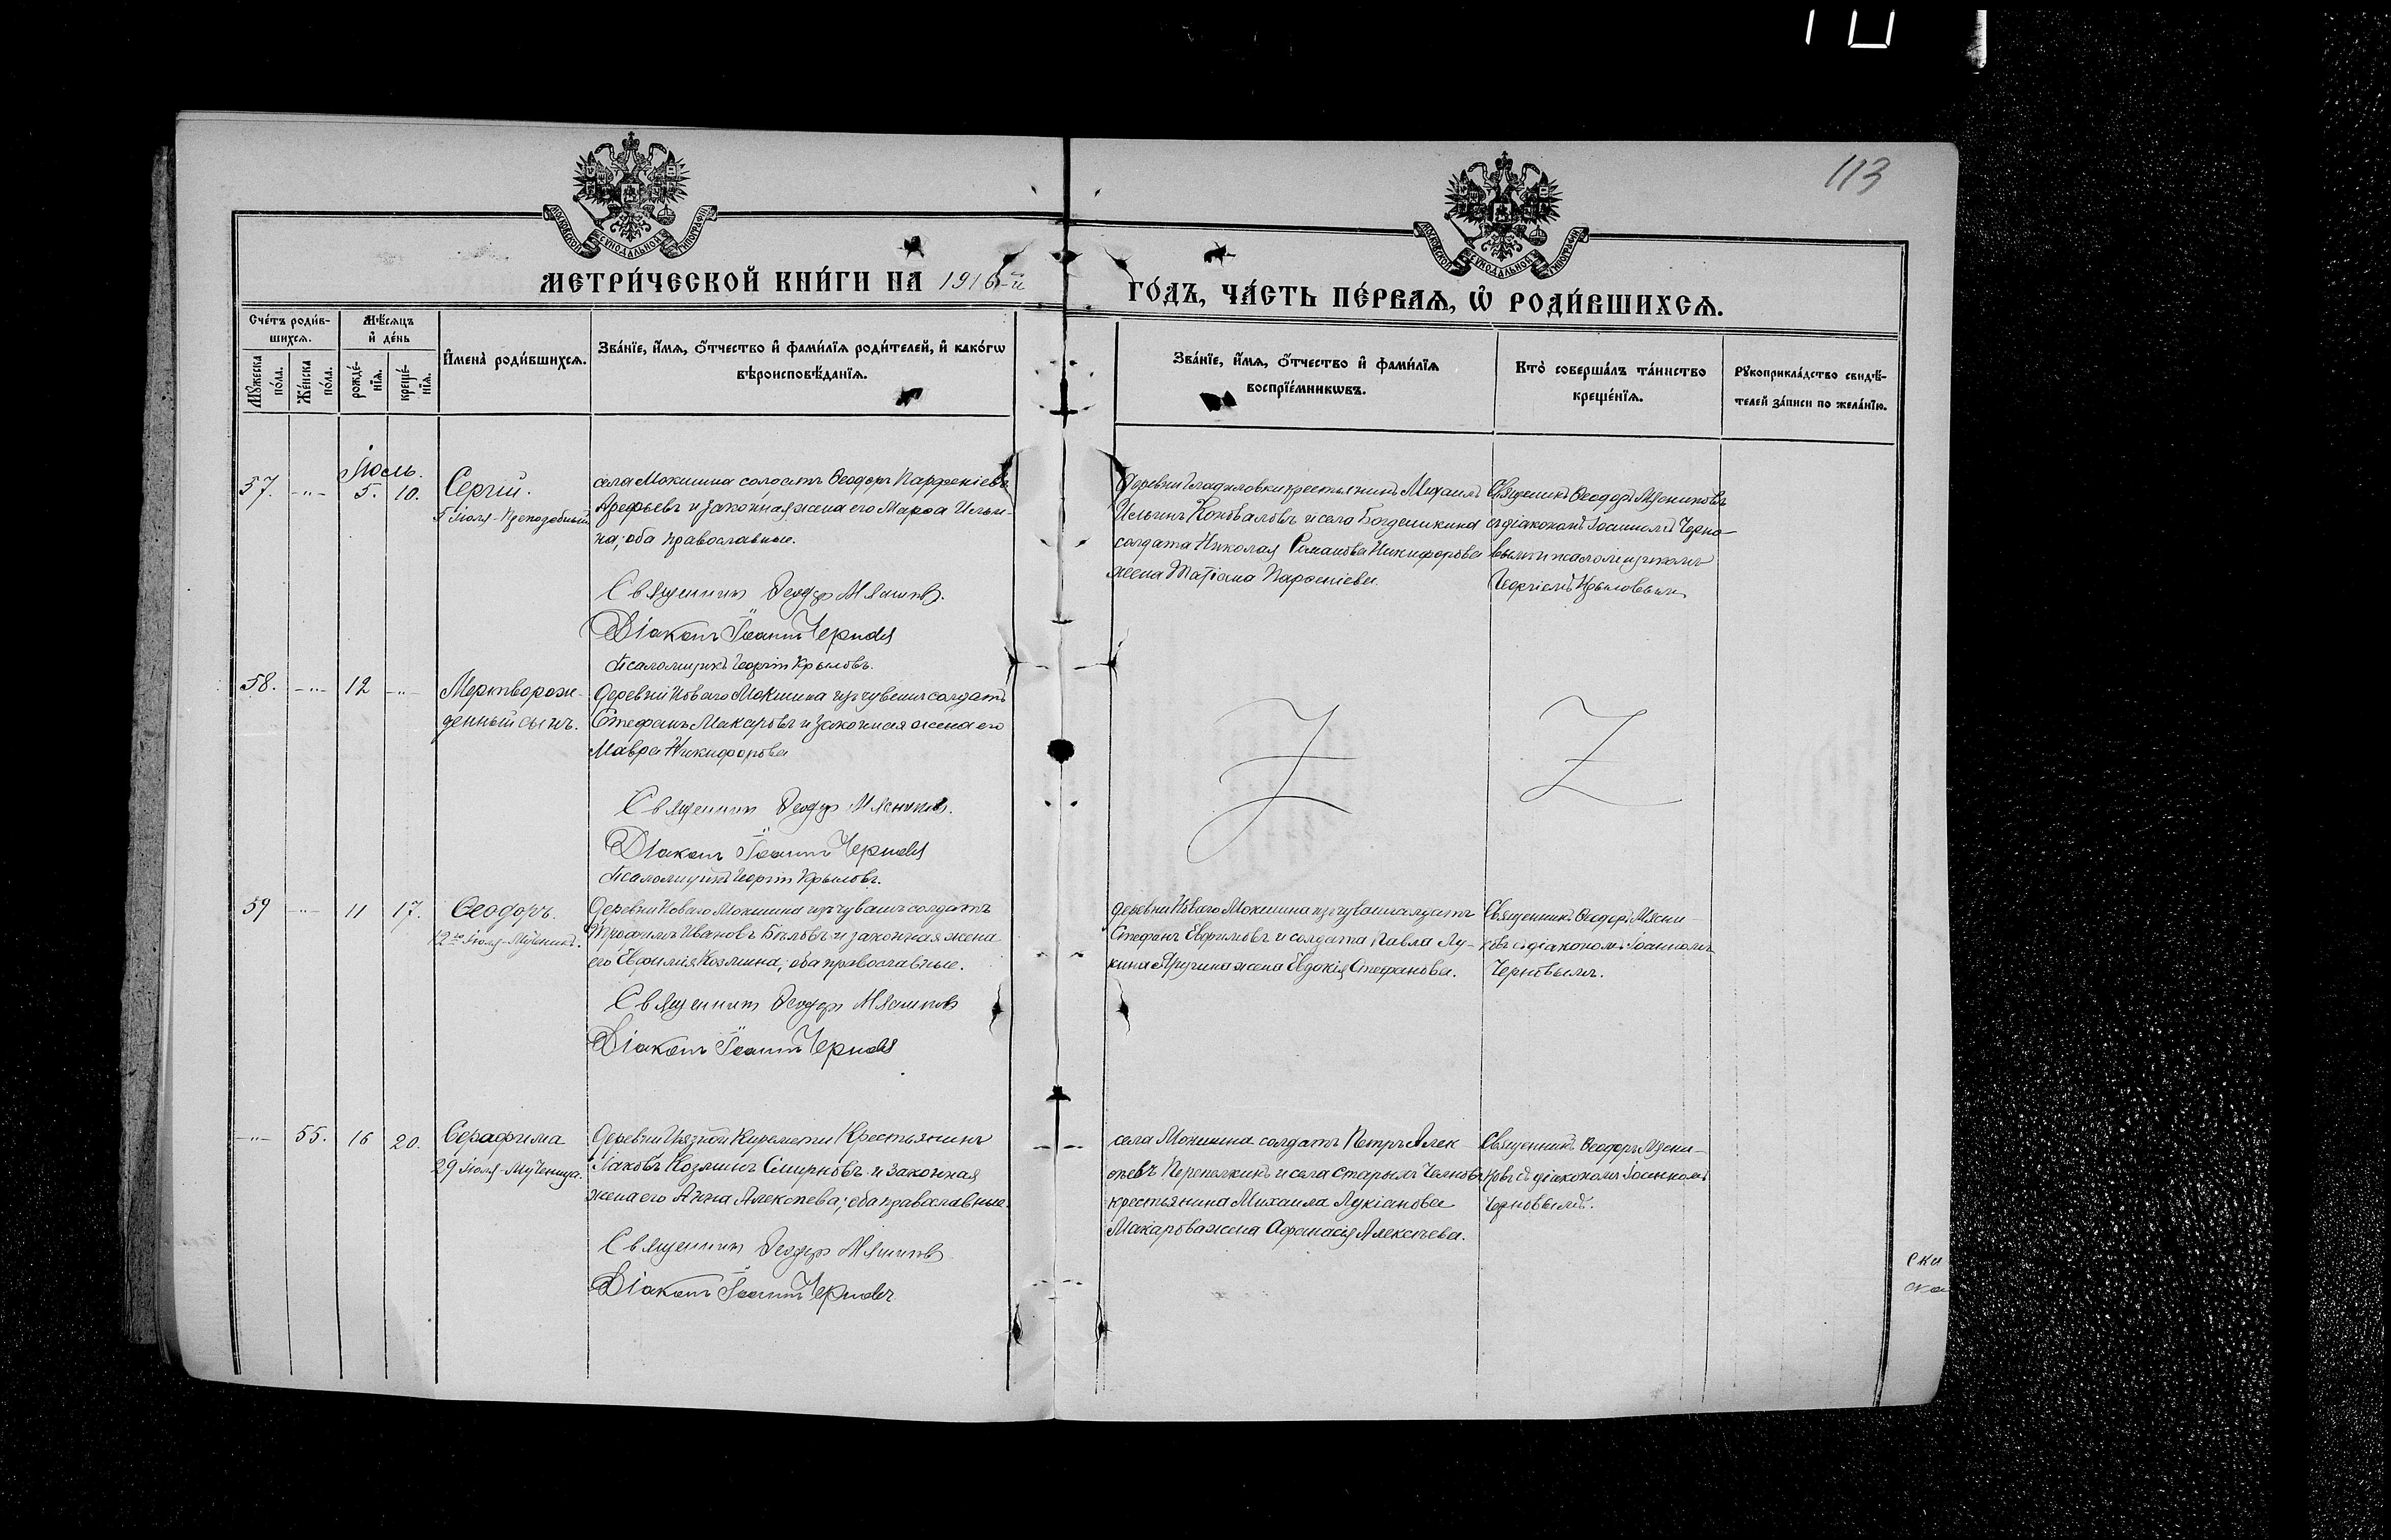 113
МОСКОВСКОЙ СѴНОДАЛЬНОЙ ТИПОГРАФІИ
МОСКОВСКОЙ СѴНОДАЛЬНОЙ ТИПОГРАФІИ
МЕТРИ́ЧЕСКОЙ КНИ́ГИ НА 1916-й
ГО́ДЪ, ЧА́СТЬ ПЕ́РВАѦ, Ѡ҆ РОДИ́ВШИХСѦ.
Сче́тъ роди́в-
шихсѧ.
Мꙋ́жеска
по́ла.
Же́нска
по́ла.
Мѣ́сѧцъ
и҆ де́нь
рожде́-
нїѧ.
креще́-
нїѧ.
И҆мена̀ роди́вшихсѧ.
Зва́нїе, и҆́мѧ, ѻ҆́тчество и҆ фами́лїѧ роди́телей, и҆ како́гѡ
вѣроисповѣ́данїѧ.
Зва́нїе, и҆́мѧ, ѻ҆́тчество и҆ фами́лїѧ
воспрїе́мникѡвъ.
Кто̀ соверша́лъ та́инство
креще́нїѧ.
Рꙋкоприкла́дство свидѣ́-
телей за́писи по жела́нїю.
Іюль.
57. -"- 5. 10. Сергій.
5 Іюля - Преподобный
села Мокшина солдатъ Ѳеодоръ Парѳеніевъ
Арефьевъ и законная жена его Марѳа Ильи-
на; оба православные.
Священникъ Ѳеодоръ Мясниковъ.
Діаконъ Іоаннъ Черновъ
Псаломщикъ Георгій Крыловъ.
деревни Гладиловки крестьянинъ Михаилъ
Ильинъ Коноваловъ и села Богдашкина
солдата Николая Романова Никифорова
жена Татіана Парѳеніева.
Священникъ Ѳеодоръ Мясниковъ
съ діакономъ Іоанномъ Черно-
вымъ и псаломщикомъ
Георгіемъ Крыловымъ
58. -"- 12 -"- Мертворож-
денный сынъ.
деревни Новаго Мокшина изъ чувашъ солдатъ
Стефанъ Макаровъ и законная жена его
Мавра Никифорова
Священникъ Ѳеодоръ Мясниковъ.
Діаконъ Іоаннъ Черновъ
Псаломщикъ Георгій Крыловъ.
Z
Z
59 -"- 11 17. Ѳеодоръ.
12го Іюля - Мученикъ.
Деревни Новаго Мокшина изъ чувашъ солдатъ
Трофимъ Ивановъ Бѣловъ и законная жена
его Евфимія Козмина; оба православные.
Священникъ Ѳеодоръ Мясниковъ
Діаконъ Іоаннъ Черновъ
деревни Новаго Мокшина изъ чувашъ солдатъ
Стефанъ Ефримовъ и солдата Павла Лу-
кина Яргунина жена Евдокія Стефанова.
Священникъ Ѳеодоръ Мясни-
ковъ съ діакономъ Іоанномъ
Черновымъ.
-"- 55. 16 20. Серафима
29 Іюля - Мученица.
Деревни Киремети Крестьянинъ
Іаковъ Козминъ Смирновъ и законная
жена его Анна Алексѣева; оба православные.
Священникъ Ѳеодоръ Мясниковъ
Діаконъ Іоаннъ Черновъ
села Мокшина солдатъ Петръ Алек
сѣевъ Перепелкинъ и села Старыхъ Челновъ
крестьянина Михаила Лукіанова
Макарова жена Аѳанасія Алексѣева.
Священникъ Ѳеодоръ Мясни-
ковъ съ діакономъ Іоанномъ
Черновымъ.
ски
ска